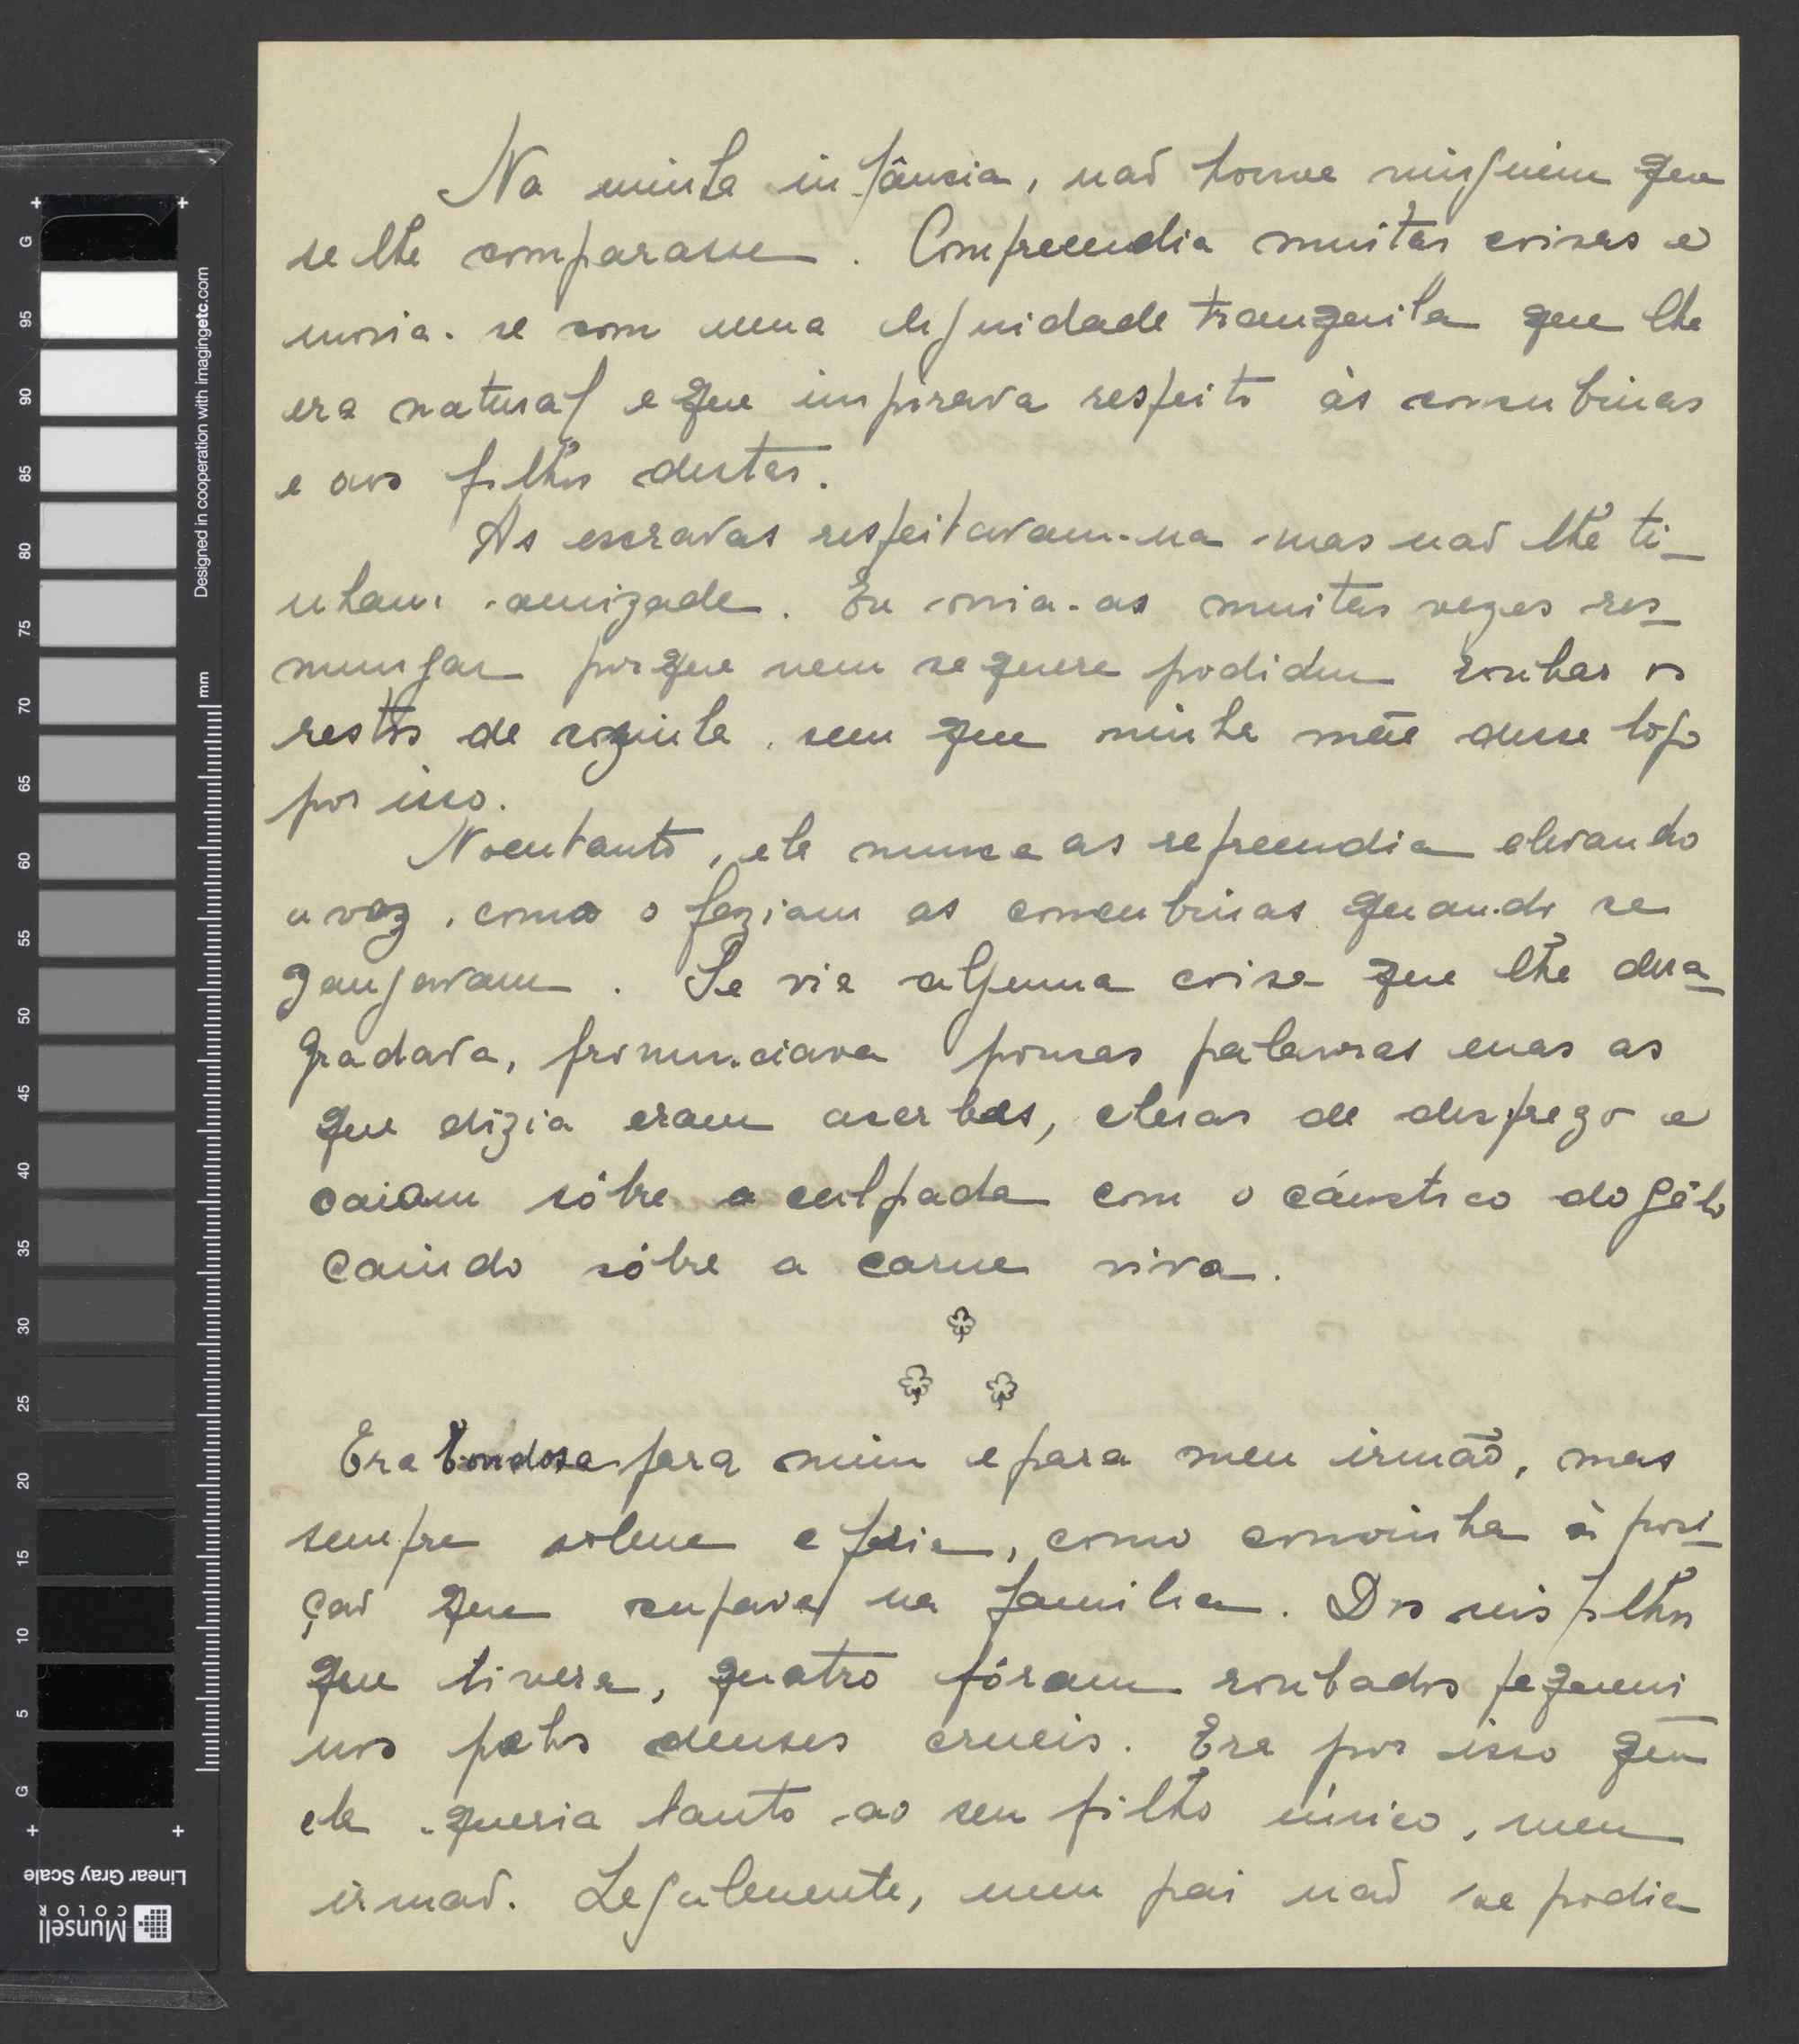 Na minha infância, não houve ninguém que
se lhe comparasse. Compreendia muitas coisas e
movia-se com uma dignidade tranquila que lhe
era natural e que inspirava respeito às concubinas
e aos filhos destas.
As escravas respeitavam-na mas não lhe ti-
nham amizade. Eu ouvia-as muitas vezes res-
mungar porque nem sequere podiam roubar os
restos de cozinha, sem que minha mãe desse logo
por isso.
No entanto, ela nunca as repreendia elevando
a voz, como o faziam as concubinas quando se
zangavam. Se via alguma coisa que lhe desa-
gradava, pronunciava poucas palavras mas as
que dizia eram acerbas, cheias de desprezo e
caiam sôbre a culpada com o cáustico do gêlo
caindo sôbre a carne viva.
Era bondosa para mim e para meu irmão, mas
sempre solene e fria, como convinha à posi-
ção que ocupava na familia. Dos seis filhos
que tivera, quatro fôram roubados pequeni
nos pelos deuses crueis. Era por isso que
ela queria tanto ao seu filho único, meu
irmão. Legalmente, meu pai não se podia
G 95 90 85 80 75 70 65 60 55 50 45 40 35 30 25 20 15 10 5 G
mm
Designed in cooperation with imagingetc.com
Linear Gray Scale
Munsell
COLOR